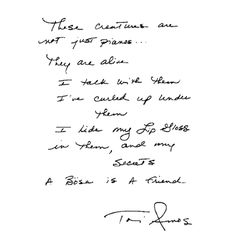 These creatures are
not just pianos...
They are alive
I talk with them
I've curled up under
them
I hide my Lip Gloss
in them, and my
secrets
A Bösa is A friend.
Tori Amos